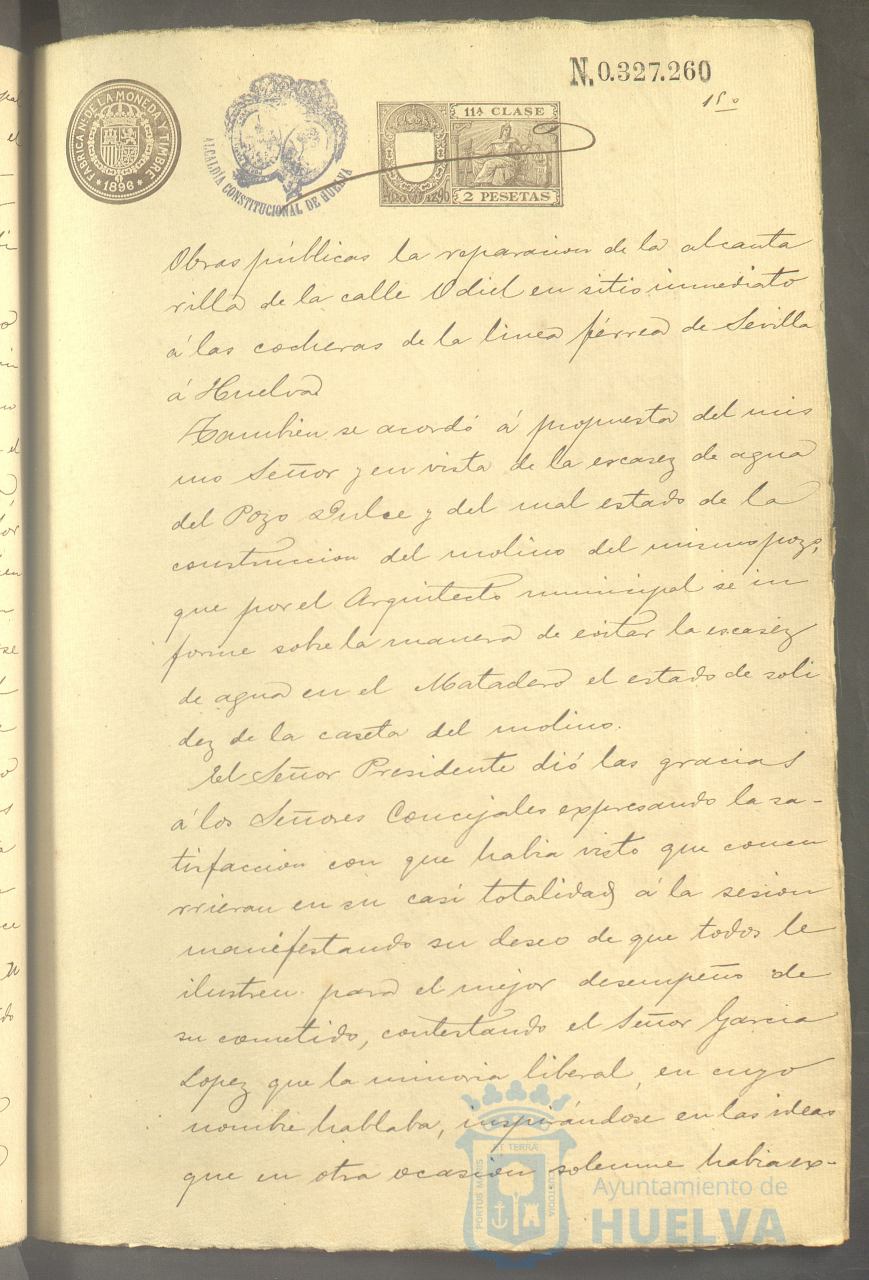 N. 0.327.260
15º
FABRICA N. DE LA MONEDA Y TIMBRE
* 1896 *
ALCALDÍA CONSTITUCIONAL DE HUELVA
11ª CLASE
2 PESETAS
Obras públicas la reparacion de la alcanta
rilla de la calle Odiel en sitio inmediato
á las cocheras de la linea férrea de Sevilla
á Huelva
Tambien se acordó á propuesta del mis
mo Señor y en vista de la escasez de agua
del Pozo Dulce y del mal estado de la
construccion del molino del mismo pozo,
que por el Arquitecto municipal se in
forme sobre la manera de evitar la escasez
de agua en el Matadero el estado de soli
dez de la caseta del molino.
El Señor Presidente dió las gracias
á los Señores Concejales expresando la sa-
tisfaccion con que habia visto que concu
rrieran en su casi totalidad á la sesion
manifestando su deseo de que todos le
ilustren para el mejor desempeño de
su cometido, contestando el Señor Garcia
Lopez que la minoria liberal, en cuyo
nombre hablaba, inspirándose en las ideas
que en otra ocasión solemne habia ex-
PORTUS MARIS
ET TERRÆ
CUSTODIA
Ayuntamiento de
HUELVA